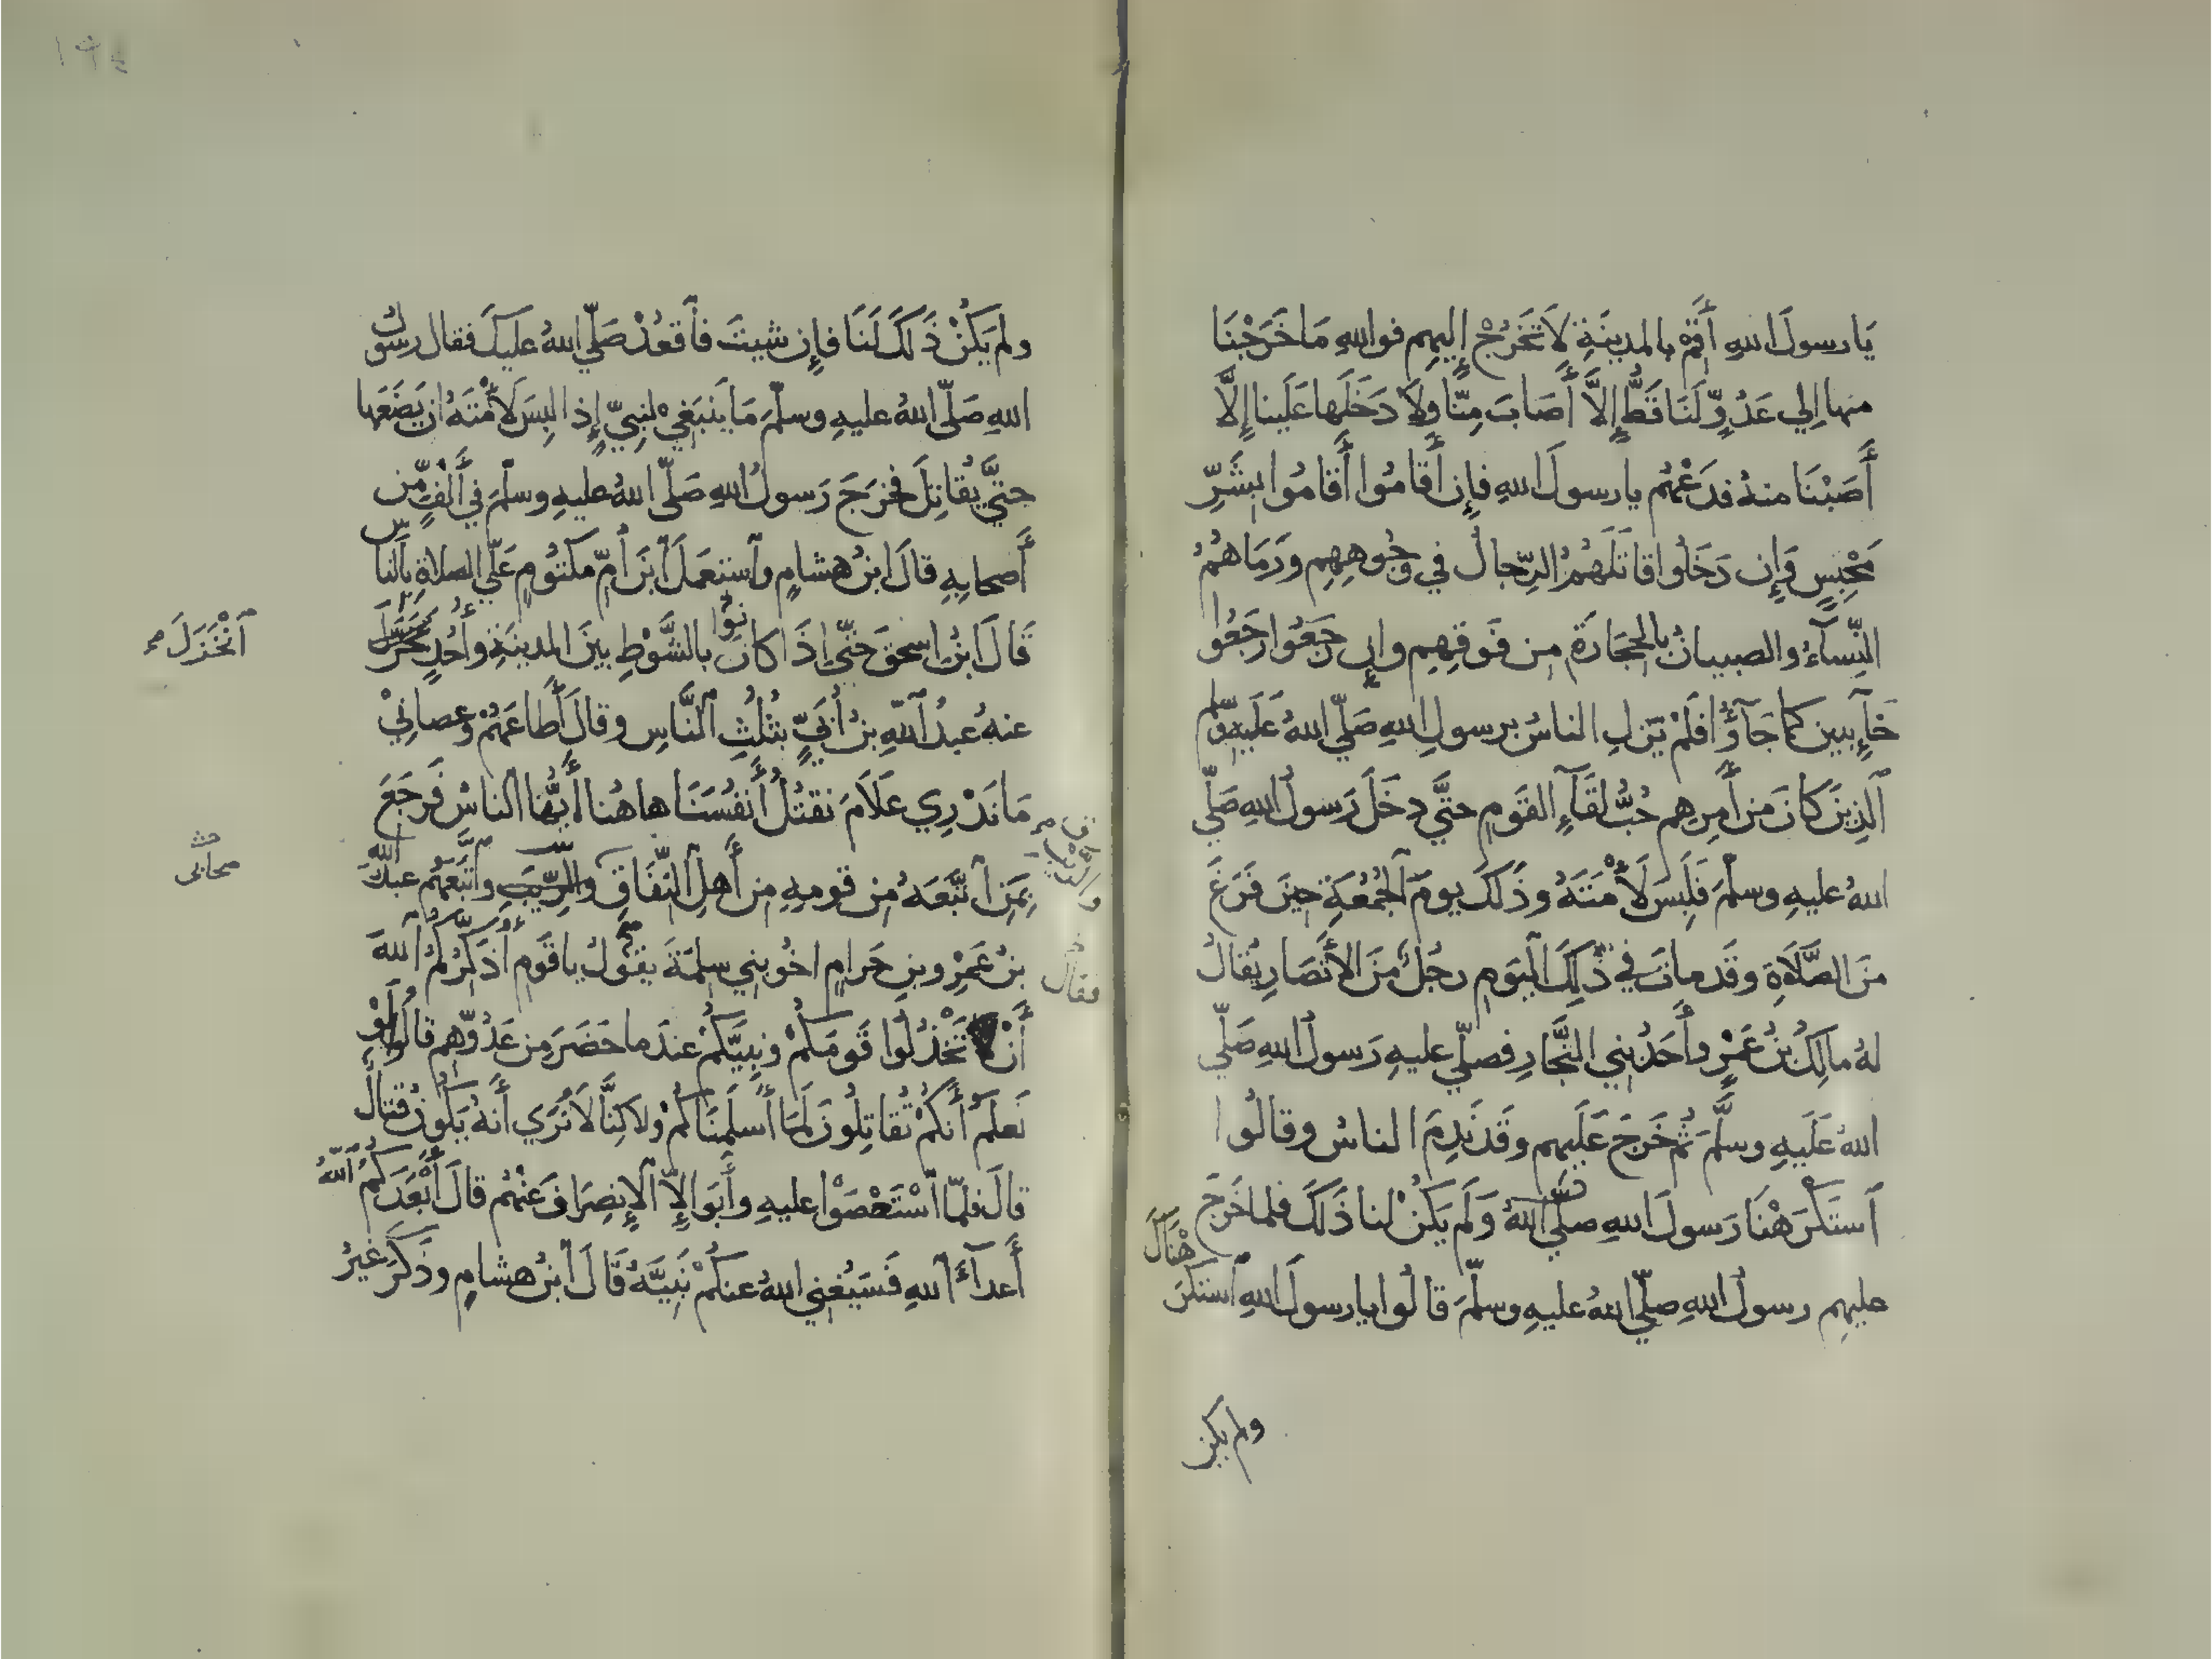 يَا رسولَ اللهِ أَقِمْ بالمدينَةِ لَا تَخَرُجْ إِليهِم فواللهِ مَا خَرَجْنَا
منها اِلي عَدُوٍّ لَنَا قَطُّ إِلاَّ أَصَابَ مِنّا ولاَ دَخَلَها عَلَينا إِلَّا
أَصَبْنَا منهُ فدَعْهُم يا رسولَ اللهِ فإِن أَقامُوا أَقامُوا بِشَرِّ
مَحْبِسٍ وَإِن دَخَلُوا قاتَلَهُمُ الرِّجالُ في وُجُوهِهِم ورَمَاهُمُ
النِّسآءُ والصبيانُ بالحِجَارَةِ مِن فَوقِهِم وإِن رَجَعُوا رَجَعُوا
خَآئِبينَ كما جَآؤُا فلَمْ يَزَلِ الناسُ برسولِ اللهِ صَلّي اللهُ عَلَيهِ وسلم
اَلذِينَ كَانَ مِن أَمرِهِم حُبُّ لقَآءِ القَومِ حتَّي دخَلَ رَسولُ اللهِ صَلّي
اللهُ عليهِ وسلّمَ فَلَبِسَ لَأْمَتَهُ وذَلكَ يومَ اَلجُمُعَةِ حِينَ فَرَغَ
منَ الصَّلَاةِ وقَد ماتَ في ذَلِكَ اَليَومِ رجُلٌ مِنَ الأَنصَارِ يُقالُ
لهُ مالِكُ بنُ عَمْرٍو أَحَدُ بني النَّجَّارِ فصلّي عليهِ رَسولُ اللهِ صَلّي
اللهُ عَلَيهِ وسلَّمَ ثُم خَرجَ عَلَيهِم وقَد نَدِمَ الناسُ وقالُوا
اَستَكْرَهْنَا رَسولَ اللهِ صلّي اللهُ وَلَم يَكُنْ لنا ذَلكَ فلما خَرَجَ
عليهِم رسولُ اللهِ صلّي اللهُ عليهِ وسلّمَ قالُوا يا رسولَ اللهِ استَكْرَ
هْنَاكَ
ولم يكن
ولم يَكُنْ ذَلكَ لَنَا فإِن شيتَ فاَقعُدْ صَلّي اللهُ عليكَ فقال رسولُ
اللهِ صَلّي اللهُ عليهِ وسلّمَ مَا يَنبَغِي لنبِيٍّ إِذا لبِسَ لَأْمَتَهُ ان يَضَعَها
حتَّي يُقاتِلَ فخرَجَ رَسولُ اللهِ صَلّي اللهُ عليهِ وسلّمَ في أَلْفٍ مِّن
أَصحابِهِ قالَ ابنُ هشامٍ واَستعمَلَ اَبنَ أُمِّ مَكتُومٍ عَلَي الصلاةِ بِالناس
قَالَ ابنُ اسحقَ حَتّي إِذَا كانُوا بالشَّوْطِ بينَ المدينَةِ وأُحُدٍ
اَنْخَزَلَ
عنهُ عبدُ اَللهِ بنُ أُبَيٍّ بثُلُثِ اَلنَّاسِ وقالَ أَطاعَهُمْ وعصانِيْ
مَا نَدْرِي عَلاَمَ نَقتُلُ أَنفُسَنَا هاهُنا أَيُّها اَلناسُ فَرجَعَ
بِمَنِ اَتَّبَعَهُ مِن قومِهِ مِن أَهلِ اَلنِّفَاقِ والرَّيبِ واَتَّبَعَهُم عبدُ الله
والرَّيبِ
صحابى
بنُ عَمْرِو بنِ حَرامٍ اخُو بني سلِمَةَ يقُولُ يا قَومِ أُذَكِّرُكُمُ اَللهَ
فقال
أَنْ تَخْذُلُوا قَومَكُمْ ونبِيَّكُمْ عندَ ما حَضَرَ مِن عَدُوِّهِم قالُوا لَوْ
نَعلَمُ أَنَّكُمْ تُقَاتِلُونَ لَمَا أَسلَمنَاكُمْ ولاكِنَّا لاَ نَرَي أَنهُ يَكُونُ قتالٌ
قالَ فلمّا اَسْتَعْصَوْا عليهِ وأَبَوا إِلاَّ اَلإِنصِرَافَ عَنْهُم قالَ أَبْعَدَكُمُ اَللهُ
أَعدآءَ اَللهِ فَسَيُغنِي اللهُ عنكُمْ نَبِيَّهُ قَالَ اَبنُ هشامٍ وذَكَرَ غيرُ